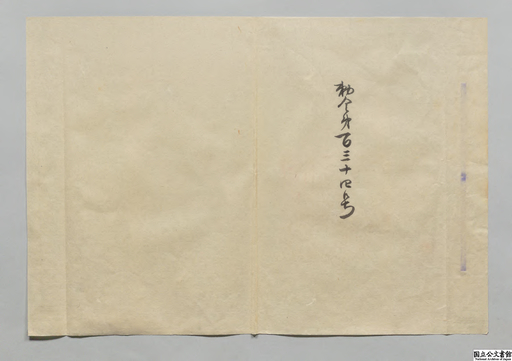 勅令第百三十四号
国立公文書館
National Archives of Japan